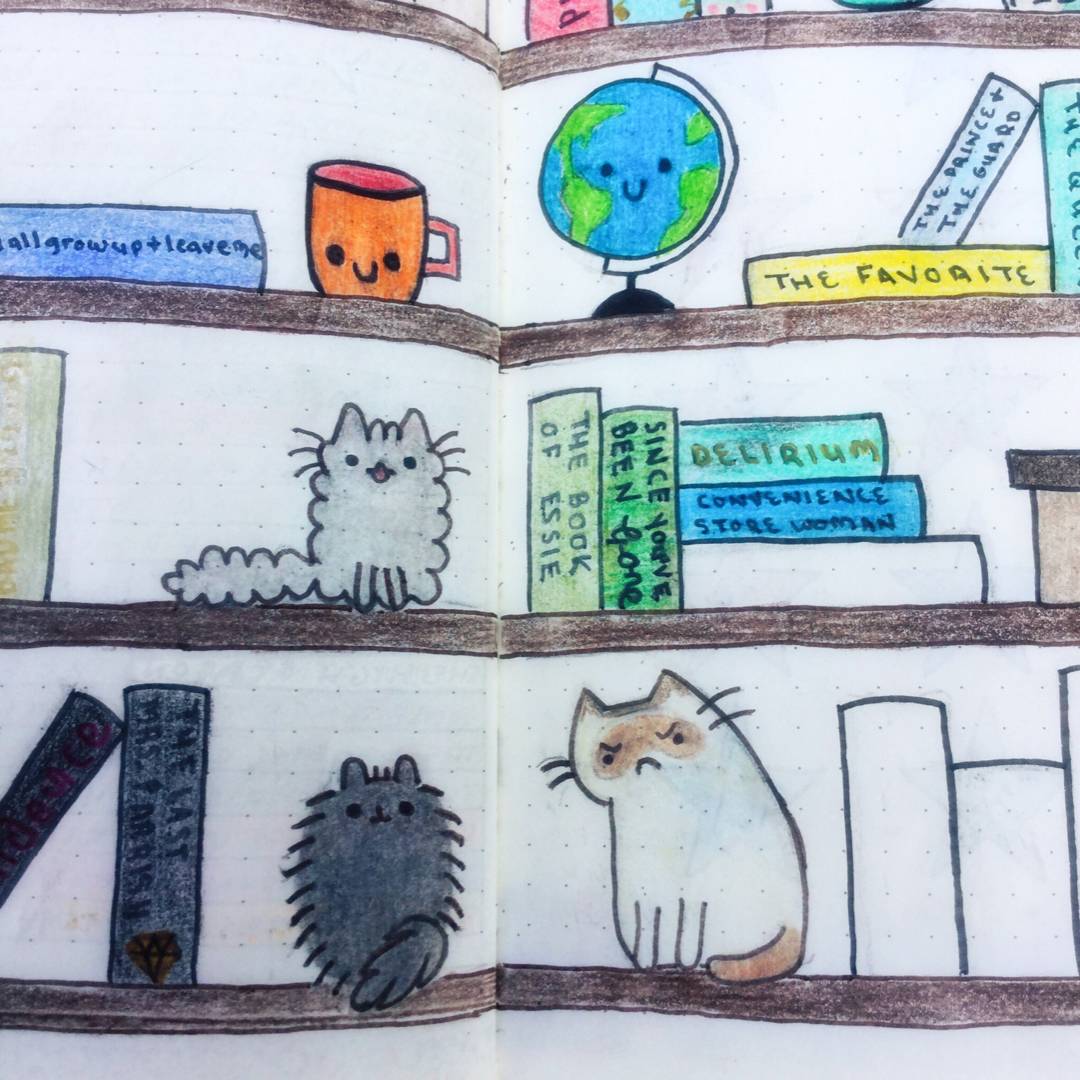 allgrowup+leaveme
THE PRINCE +
THE GUARD
THE FAVORITE
THE BOOK
OF ESSIE
SINCE YOU'VE
BEEN Gone
DELIRIUM
CONVENIENCE
STORE WOMAN
THE LAST
MRS. PARRISH